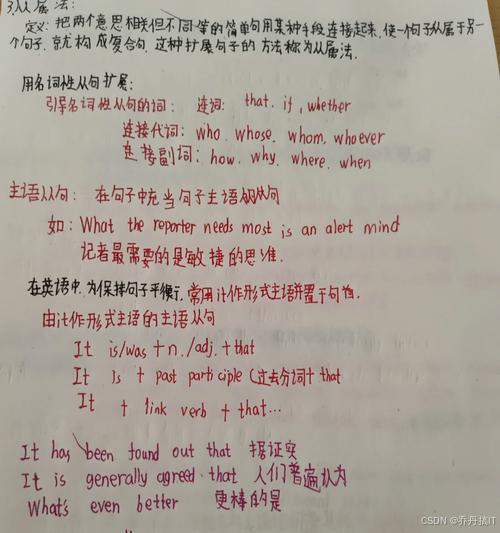 3.从属法:
定义:把两个意思相关但不同等的简单句用某种手段连接起来,使一个句子从属于另
一个句子,就构成复合句,这种扩展句子的方法称为从属法.
用名词性从句扩展:
引导名词性从句的词: 连词: that. if, whether
连接代词: who. whose. whom. whoever
连接副词: how. why. where. when
主语从句: 在句子中充当句子主语的从句
如: What the reporter needs most is an alert mind
记者最需要的是敏捷的思维.
在英语中,为保持句子平衡,常用it作形式主语并置于句首.
由it作形式主语的主语从句
It is/was + n./adj. + that
It is + past participle (过去分词) + that
It + link verb + that...
It has been found out that 据证实
It is generally agreed that 人们普遍认为
What's even better 更棒的是
CSDN @乔丹搞IT